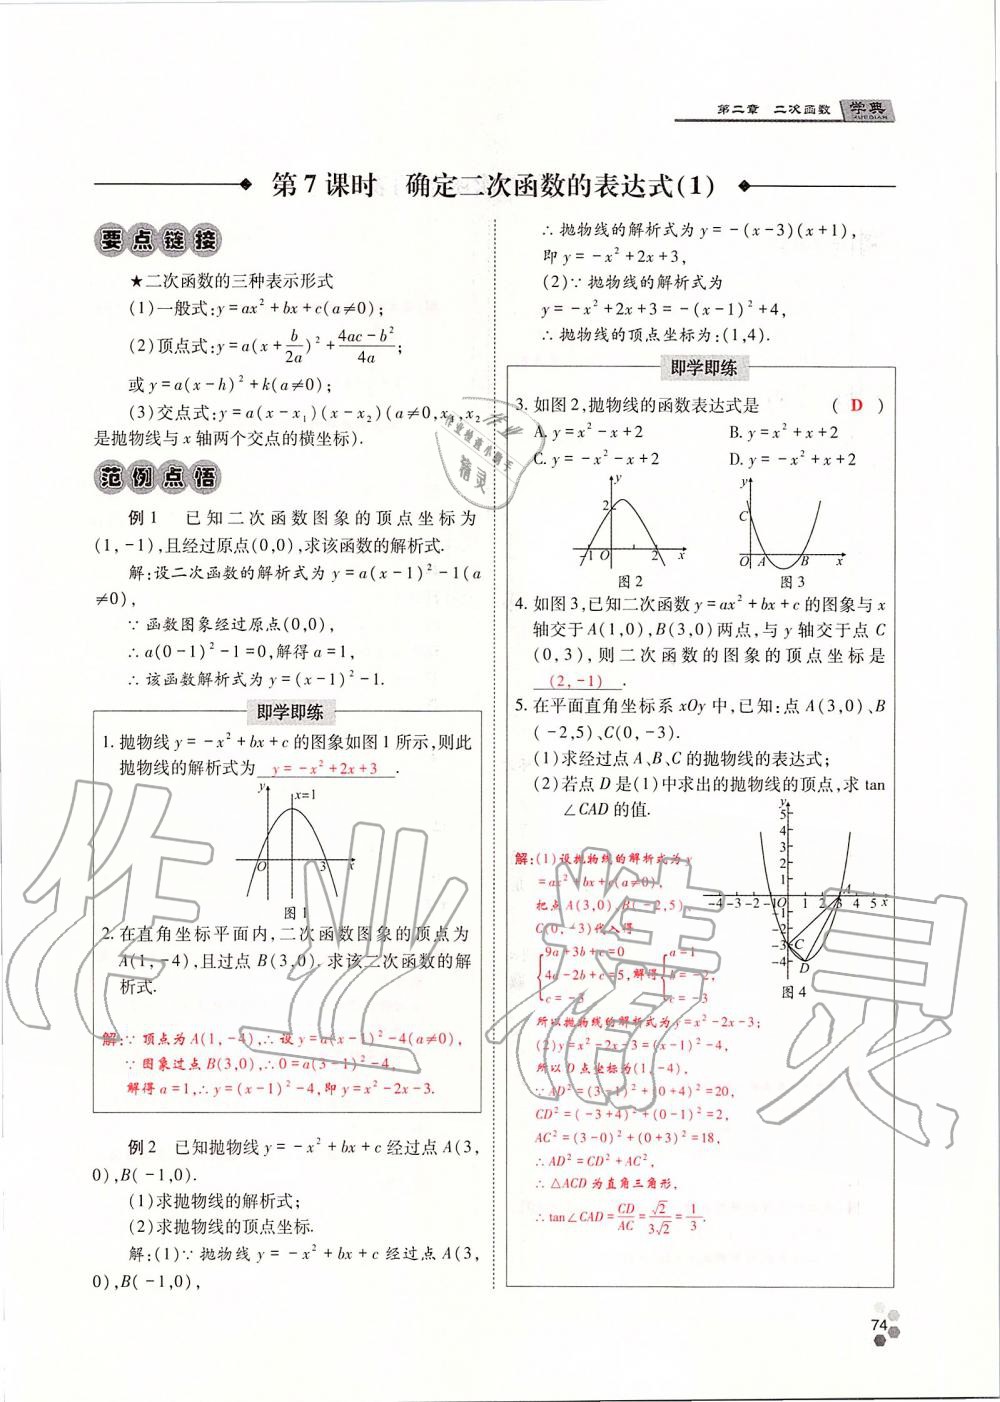 第二章 二次函数 学典
XUEDIAN
第7课时 确定二次函数的表达式(1)
要点链接
★二次函数的三种表示形式
(1)一般式:y=ax²+bx+c(a≠0);
(2)顶点式:y=a(x+b/2a)²+(4ac-b²)/4a;
或y=a(x-h)²+k(a≠0);
(3)交点式:y=a(x-x₁)(x-x₂)(a≠0,x₁,x₂
是抛物线与x轴两个交点的横坐标).
范例点悟
例1 已知二次函数图象的顶点坐标为
(1,-1),且经过原点(0,0),求该函数的解析式.
解:设二次函数的解析式为y=a(x-1)²-1(a
≠0),
∵函数图象经过原点(0,0),
∴a(0-1)²-1=0,解得a=1,
∴该函数解析式为y=(x-1)²-1.
即学即练
1. 抛物线y=-x²+bx+c的图象如图1所示,则此
抛物线的解析式为 y=-x²+2x+3 .
y
x=1
O 3 x
图1
2. 在直角坐标平面内,二次函数图象的顶点为
A(1,-4),且过点B(3,0).求该二次函数的解
析式.
解:∵顶点为A(1,-4),∴设y=a(x-1)²-4(a≠0),
∵图象过点B(3,0),∴0=a(3-1)²-4,
解得a=1,∴y=(x-1)²-4,即y=x²-2x-3.
例2 已知抛物线y=-x²+bx+c经过点A(3,
0),B(-1,0).
(1)求抛物线的解析式;
(2)求抛物线的顶点坐标.
解:(1)∵抛物线y=-x²+bx+c经过点A(3,
0),B(-1,0),
∴抛物线的解析式为y=-(x-3)(x+1),
即y=-x²+2x+3,
(2)∵抛物线的解析式为
y=-x²+2x+3=-(x-1)²+4,
∴抛物线的顶点坐标为:(1,4).
即学即练
3. 如图2,抛物线的函数表达式是 ( D )
A. y=x²-x+2 B. y=x²+x+2
C. y=-x²-x+2 D. y=-x²+x+2
y
2
-1 O 2 x
图2
y
C
O A B x
图3
4. 如图3,已知二次函数y=ax²+bx+c的图象与x
轴交于A(1,0),B(3,0)两点,与y轴交于点C
(0,3),则二次函数的图象的顶点坐标是
(2,-1) .
5. 在平面直角坐标系xOy中,已知:点A(3,0)、B
(-2,5)、C(0,-3).
(1)求经过点A、B、C的抛物线的表达式;
(2)若点D是(1)中求出的抛物线的顶点,求tan
∠CAD的值.
y
5
4
3
2
1
-4-3-2-1O 1 2 3 4 5 x
A
-1
-2
-3 C
-4 D
图4
解:(1)设抛物线的解析式为y
=ax²+bx+c(a≠0),
把点A(3,0)、B(-2,5)、
C(0,-3)代入得
9a+3b+c=0 a=1
4a-2b+c=5,解得 b=-2,
c=-3 c=-3
所以抛物线的解析式为y=x²-2x-3;
(2)y=x²-2x-3=(x-1)²-4,
所以D点坐标为(1,-4),
∵AD²=(3-1)²+(0+4)²=20,
CD²=(-3+4)²+(0-1)²=2,
AC²=(3-0)²+(0+3)²=18,
∴AD²=CD²+AC²,
∴△ACD为直角三角形,
∴tan∠CAD=CD/AC=√2/3√2=1/3.
作业精灵
74